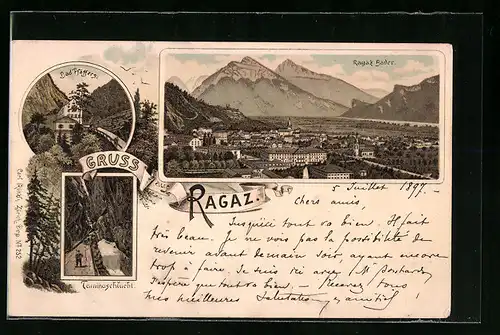 Bad Pfäffers.
Ragaz Bäder.
GRUSS
AUS
RAGAZ.
Taminaschlucht.
5 Juillet 1897.
Chers amis,
Jusqu'ici tout va bien. Il fait
très beau. Je ne vois pas la possibilité de
revenir avant demain soir, ayant encore
trop à faire. Je suis ici avec M.
J'espère que tout va bien. — Recevez tous
mes meilleures Salutations et amitiés!